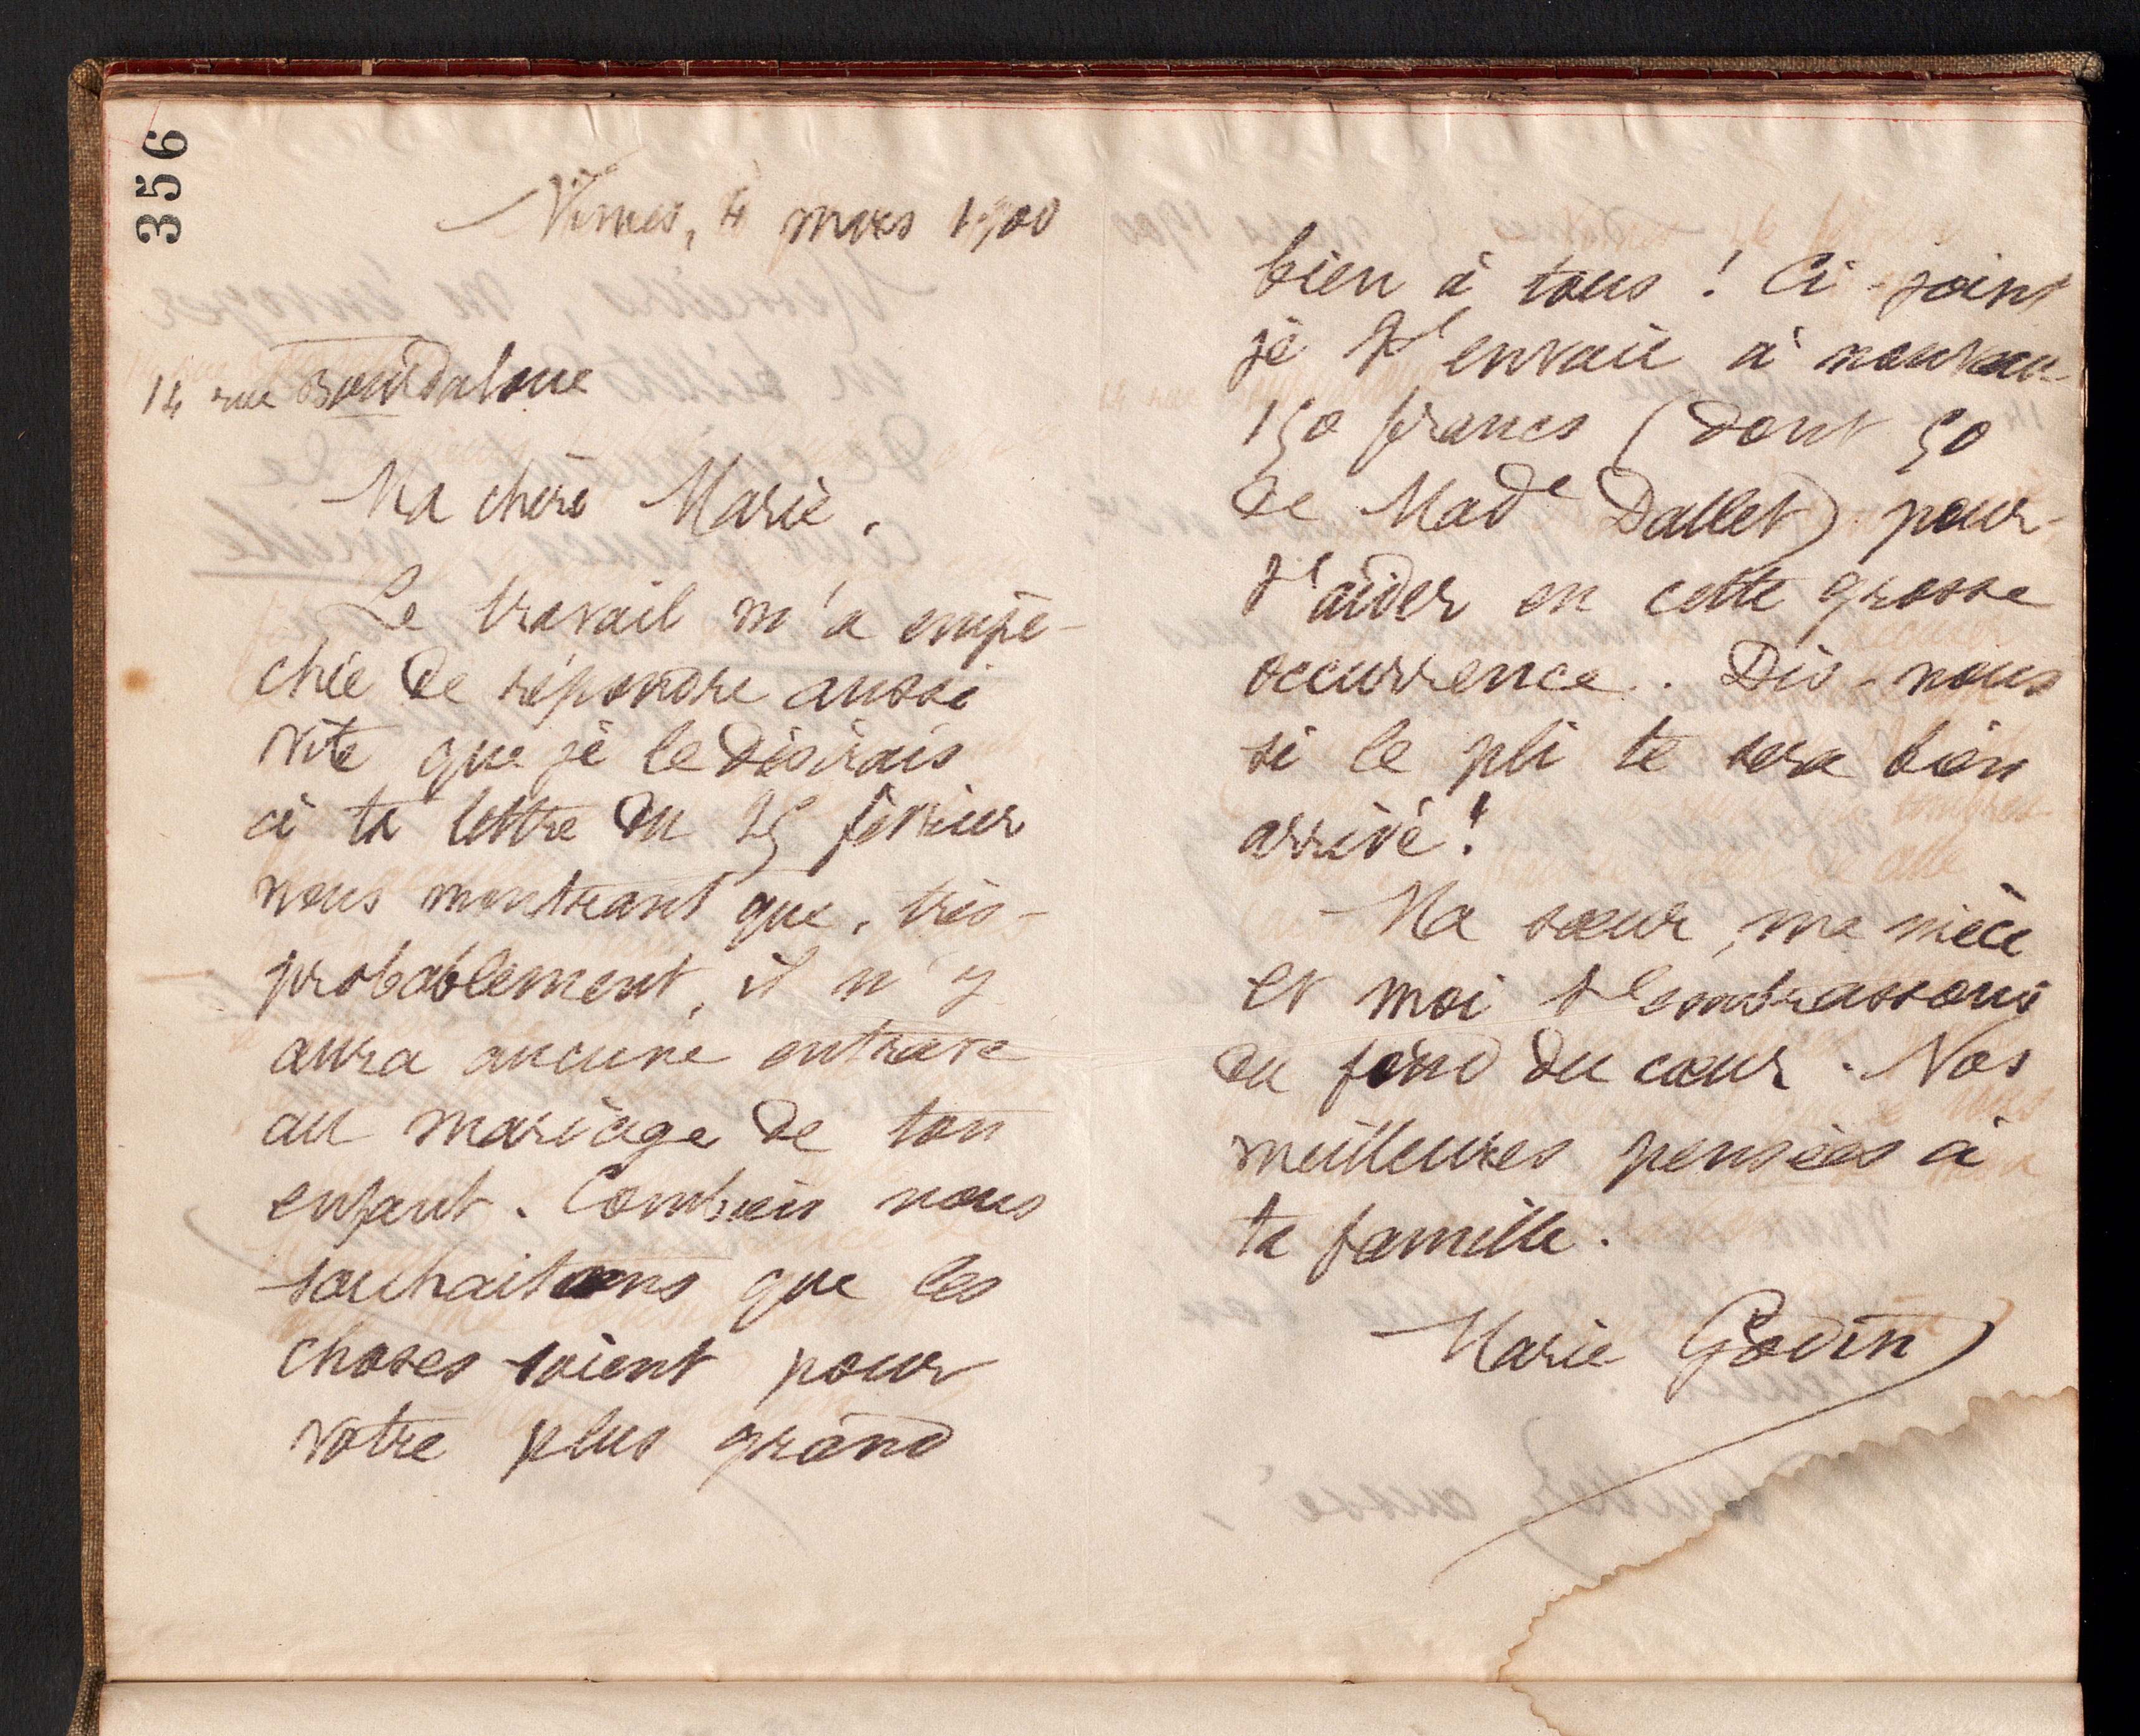 356
Nîmes, 4 mars 1900
14 rue Bourdaloue
Ma chère Marie,
Le travail m'a empê-
chée de répondre aussi
vite que je le désirais
à ta lettre du 25 février
nous montrant que, très-
probablement, il n'y
aura aucune entrave
au mariage de ton
enfant. Combien nous
souhaitons que les
choses soient pour
votre plus grand
bien à tous ! Ci-joint
je t'envoie à nouveau
150 francs (dont 50
de Made Dallet) pour
t'aider en cette grosse
occurrence. Dis-nous
si le pli te sera bien
arrivé !
Ma sœur, ma nièce
et moi t'embrassons
du fond du cœur. Nos
meilleures pensées à
ta famille.
Marie Godin